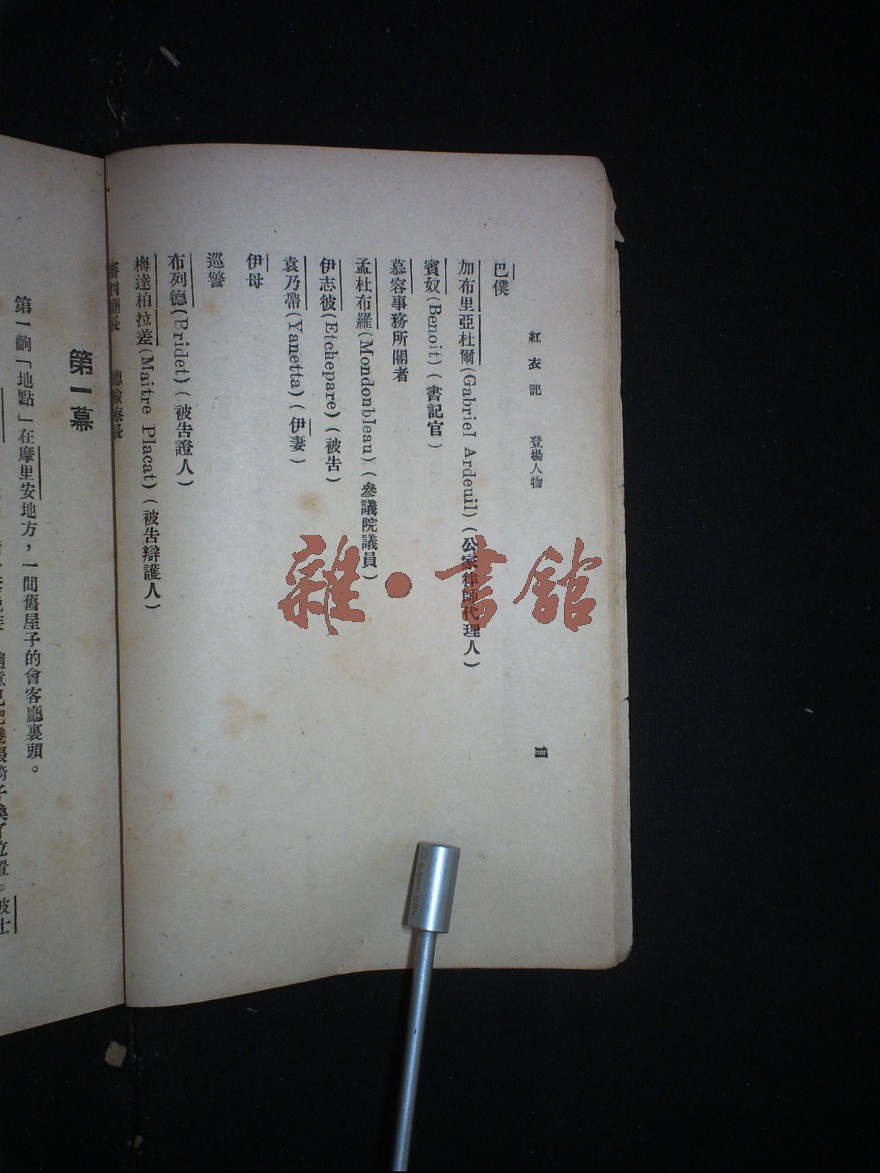 紅衣記　登場人物
巴僕
加布里亞杜爾(Gabriel Ardeuil)(公家律師代理人)
賓奴(Benoit)(書記官)
慕容事務所閽者
孟杜布羅(Mondonbleau)(參議院議員)
伊志彼(Etchepare)(被告)
袁乃帶(Yanetta)(伊妻)
伊母
巡警
布列德(Bridet)(被告證人)
梅達柏拉差(Maitre Placat)(被告辯護人)
審判廳長　總檢察長
第一幕
第一齣「地點」在摩里安地方，一間舊屋子的會客廳裏頭。
幾張椅子換了位置。波士
雜·書館